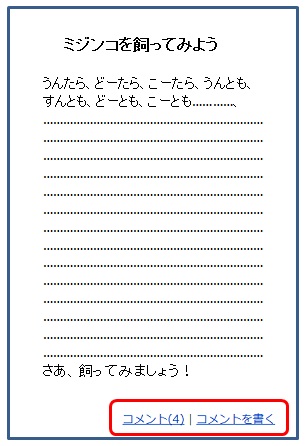 ミジンコを飼ってみよう
うんたら、どーたら、こーたら、うんとも、
すんとも、どーとも、こーとも…………、
………………………………………………………
………………………………………………………
………………………………………………………
………………………………………………………
………………………………………………………
………………………………………………………
………………………………………………………
………………………………………………………
………………………………………………………
………………………………………………………
………………………………………………………
………………………………………………………
………………………………………………………
………………………………………………………
さあ、飼ってみましょう！
コメント(4) | コメントを書く